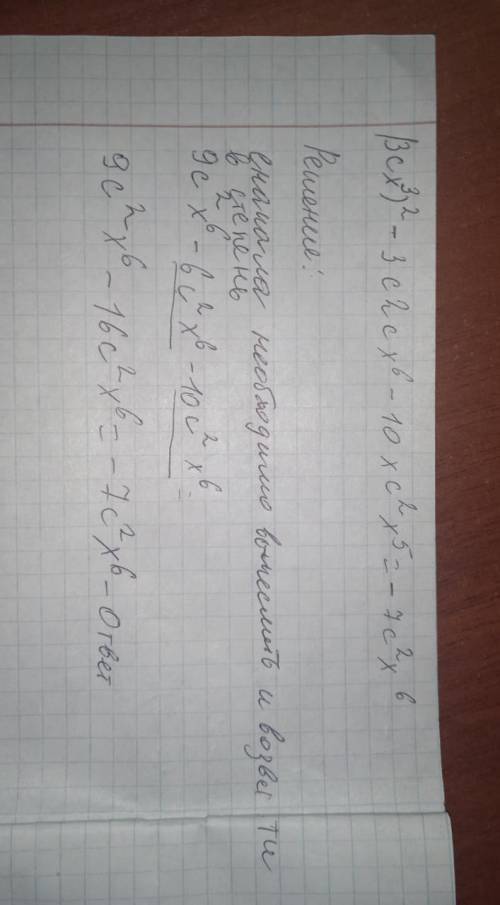 (3cx³)² - 3c2cx⁶ - 10xc²x⁵ = - 7c²x⁶
Решение:
Сначала необходимо вычислить и возвести
в степень
9c²x⁶ - 6c²x⁶ - 10c²x⁶ =
9c²x⁶ - 16c²x⁶ = - 7c²x⁶ - Ответ